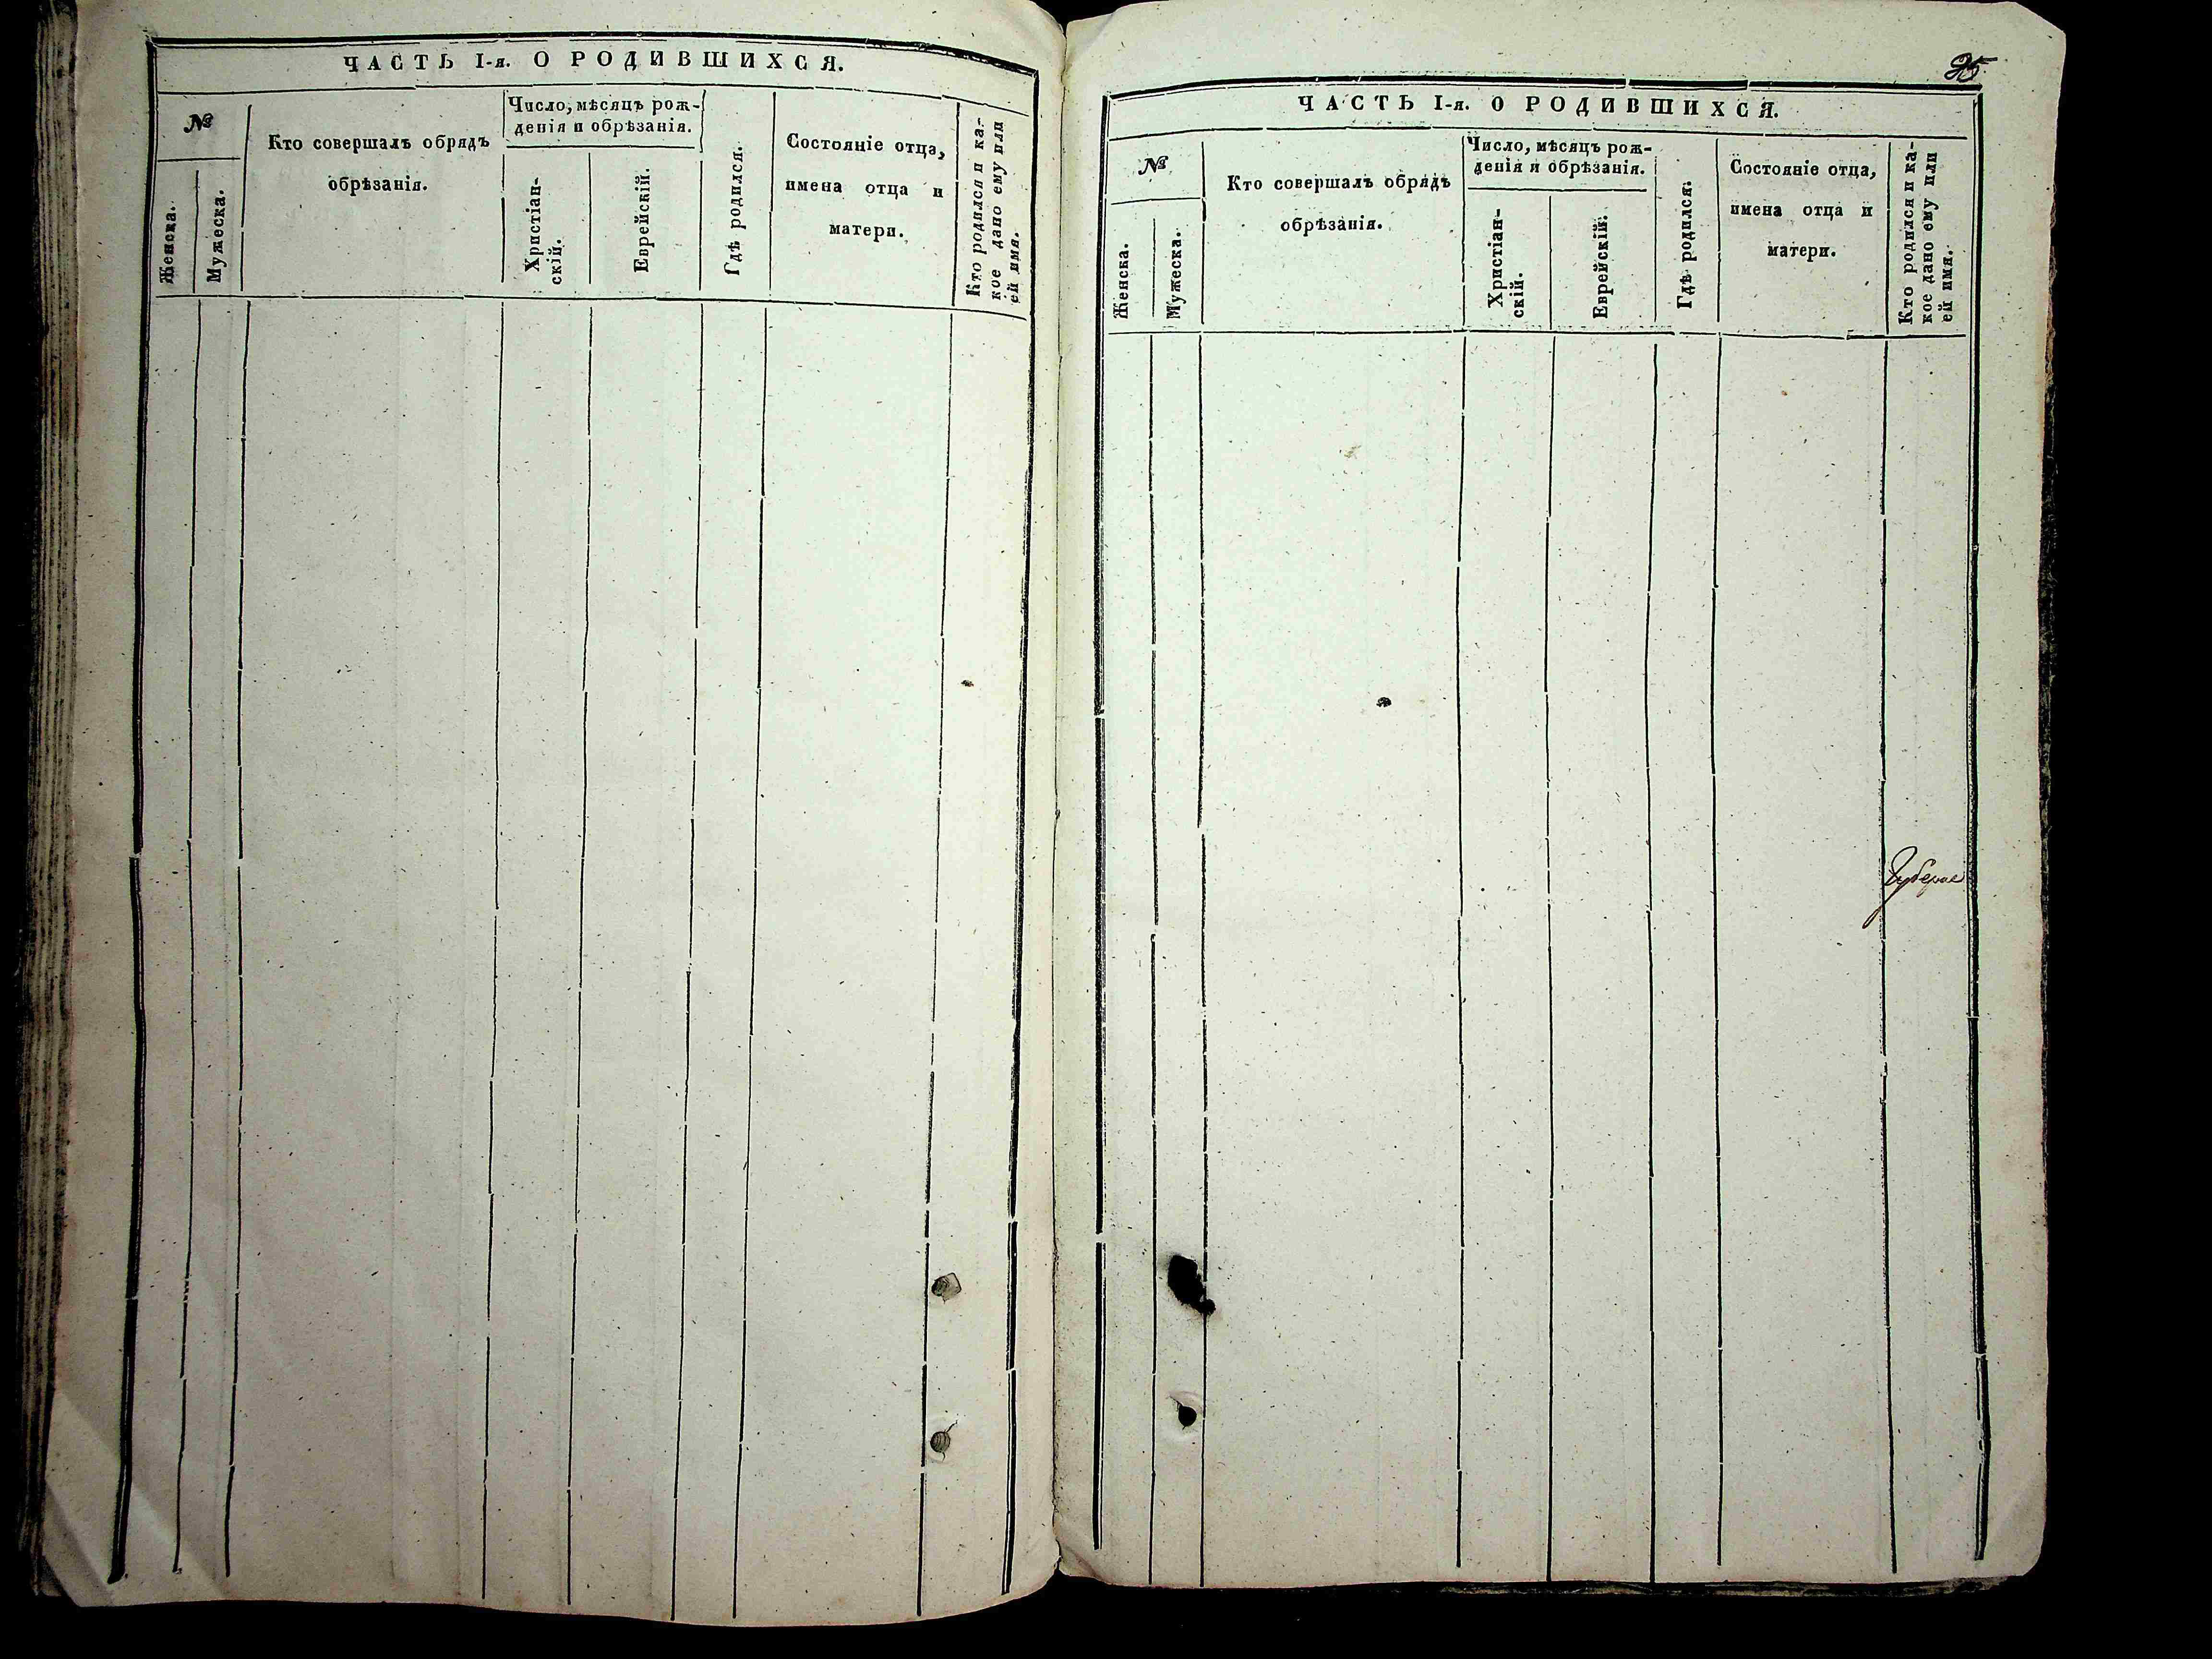 ЧАСТЬ I-я. О РОДИВШИХСЯ.
№
Женска.
Мужеска.
Кто совершалъ обрядъ
обрѣзанія.
Число, мѣсяцъ рож-
денія и обрѣзанія.
Христіан-
скій.
Еврейскій.
Гдѣ родился.
Состояніе отца,
имена отца и
матери.
Кто родился и ка-
кое дано ему или
ей имя.
95
ЧАСТЬ I-я. О РОДИВШИХСЯ.
№
Женска.
Мужеска.
Кто совершалъ обрядъ
обрѣзанія.
Число, мѣсяцъ рож-
денія и обрѣзанія.
Христіан-
скій.
Еврейскій.
Гдѣ родился.
Состояніе отца,
имена отца и
матери.
Кто родился и ка-
кое дано ему или
ей имя.